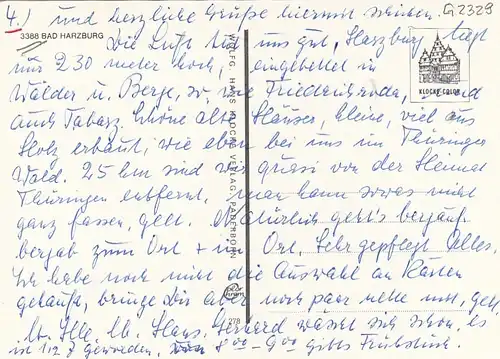 4.) und herzliche Grüße hiermit schicken. G2329
3388 BAD HARZBURG
Die Luft tut uns gut, Harzburg liegt
nur 230 meter hoch, eingebettet in
Wälder u. Berge, so, wie Friedrichroda, und
auch Tabarz. Schöne alte Häuser, kleine, viel aus
Holz erbaut, wie eben bei uns im Thüringer
Wald. 25 km sind wir quasi von der Heimat
Thüringen entfernt, man kann sowas nicht
ganz fassen, gell. Natürlich geht's bergauf
bergab zum Ort + im Ort. Sehr gepflegt Alles.
Ich habe noch nicht die Auswahl an Karten
gekauft, bringe Dir aber noch paar nette mit, gell.
lb. Ille, lb. Hans-Gerhard wäscht sich schon, es
ist 1/2 8 geworden, von 8 00 - 9 00 gibts Frühstück.
WOLFG. HANS KLOCKE VERLAG · PADERBORN
KLOCKE-COLOR
278